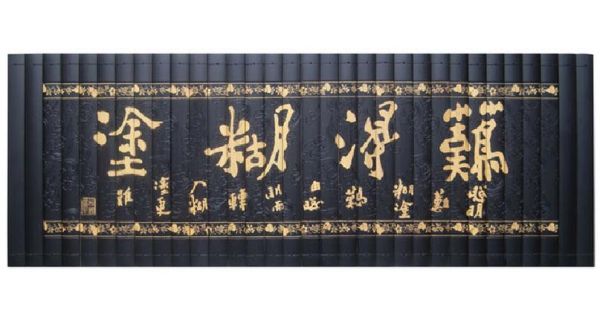 難得糊塗
聰明難糊塗難由聰明而轉入糊塗更難